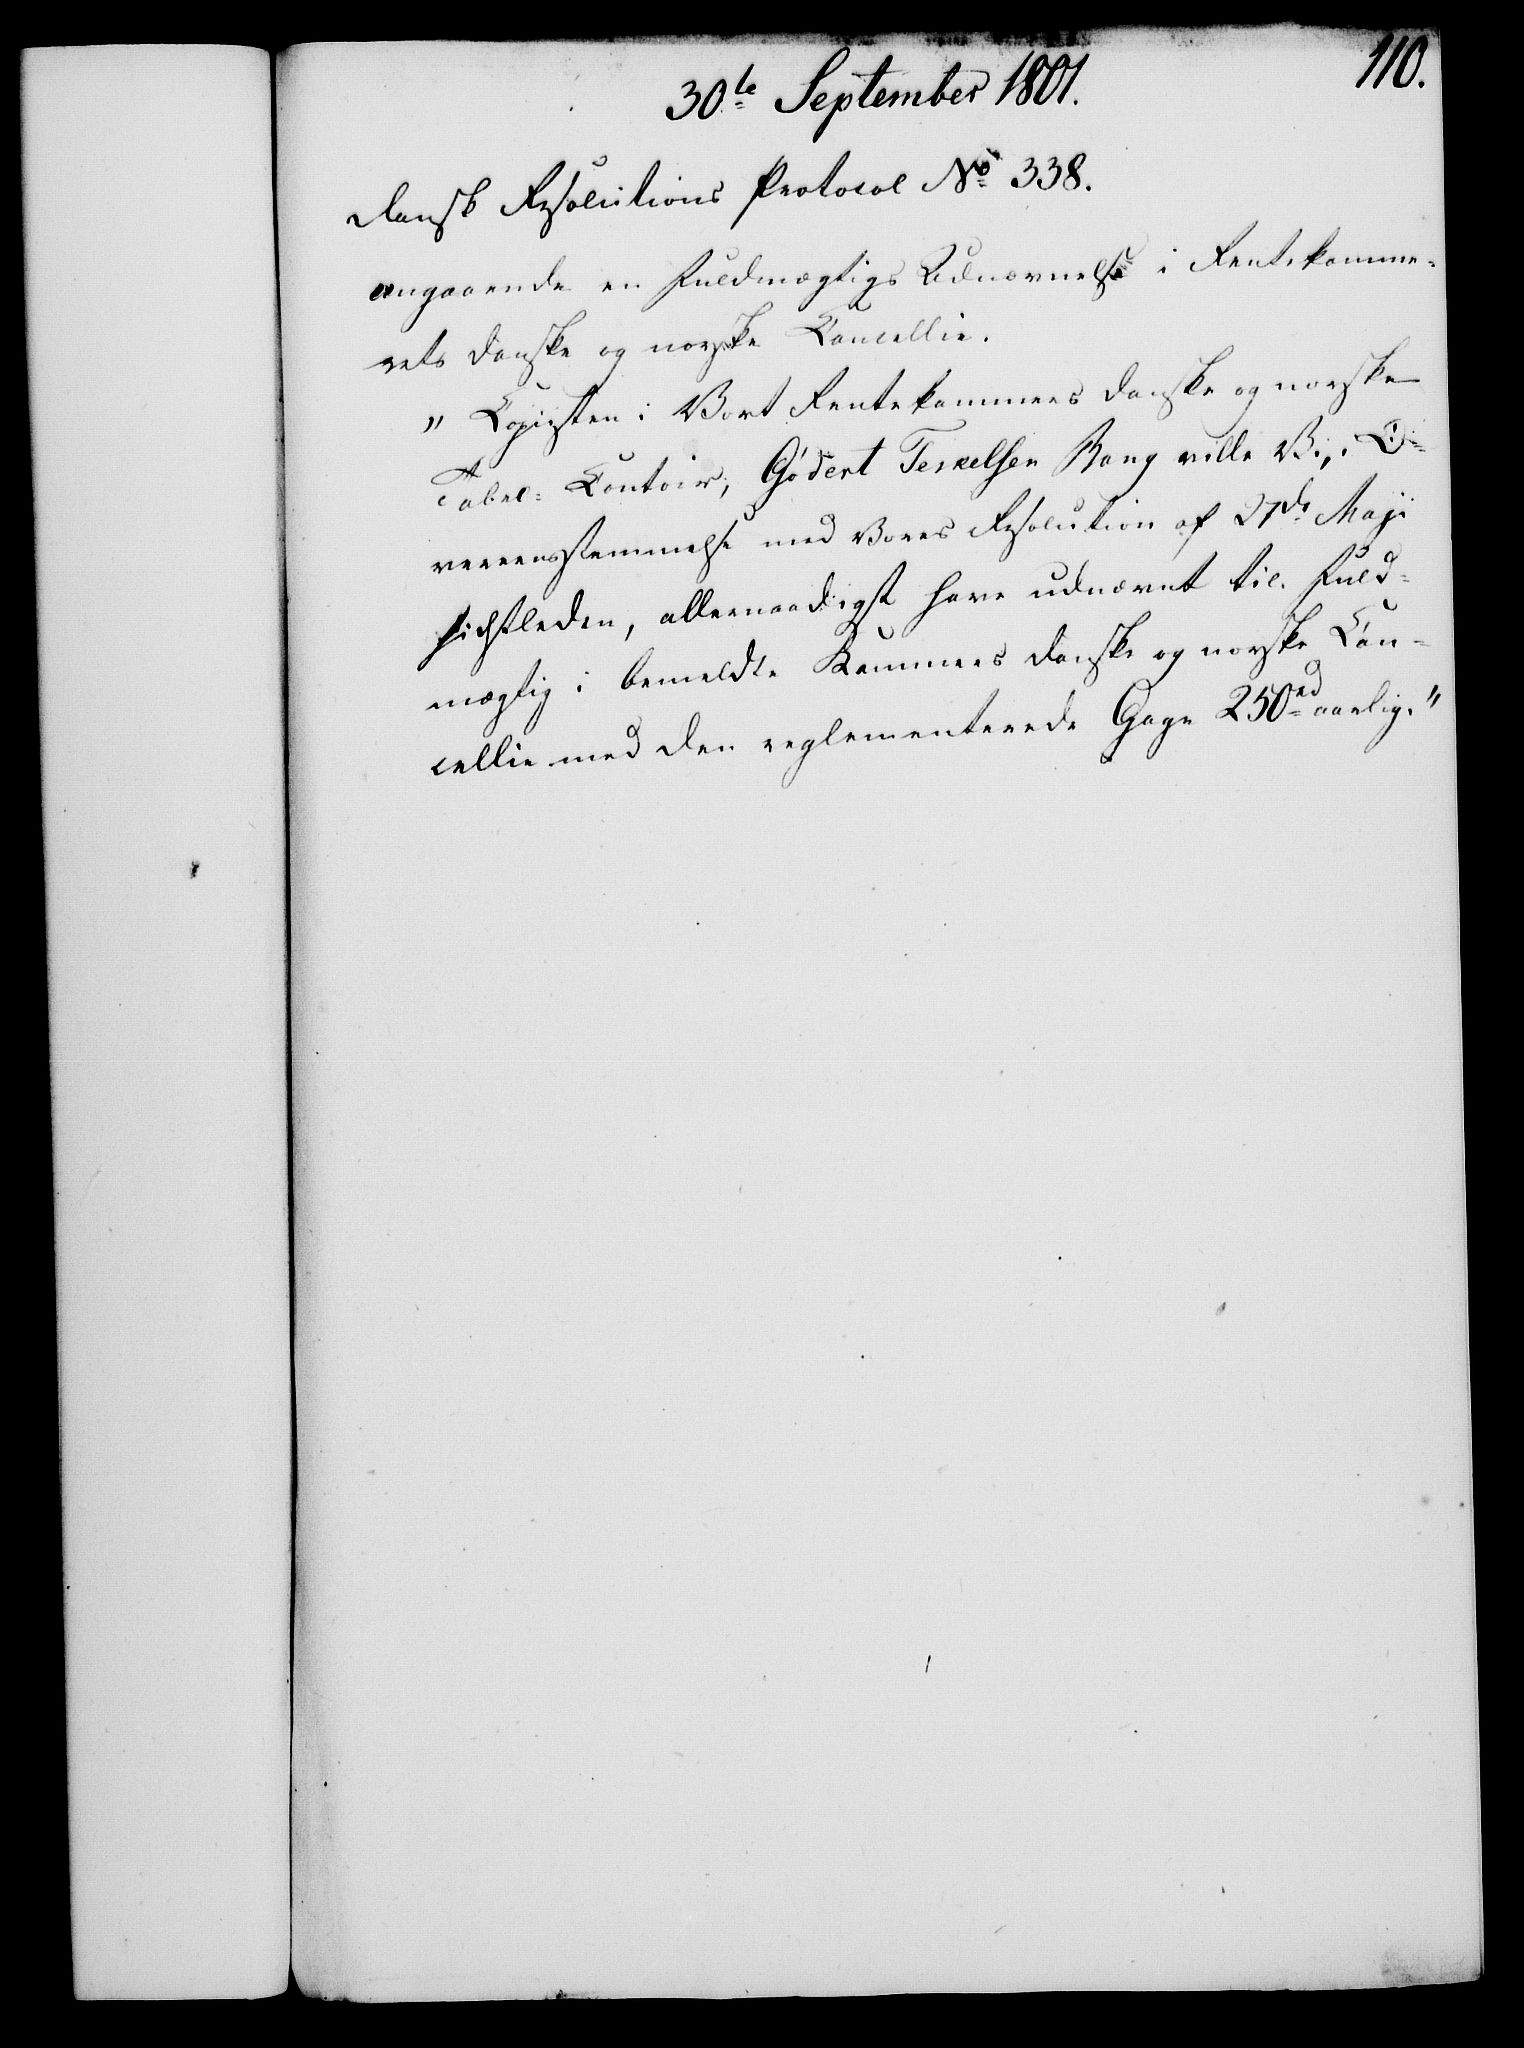 110.
30te September 1801.
Dansk Resolutions Protocol No 338.
angaaende en Fuldmægtigs Udnævnelse i Rentekamme-
rets danske og norske Cancellie.
" Copiisten i Vort Rentekammers danske og norske
Tabel-Contoir, Gödert Terkelsen Bang ville Vi, i O-
vereensstemmelse med Vores Resolution af 27de Maji
sidstleden, allernaadigst have udnævnt til Fuld-
mægtig i bemeldte Kammers danske og norske Can-
cellie med den reglementerede Gage 250rd aarlig."